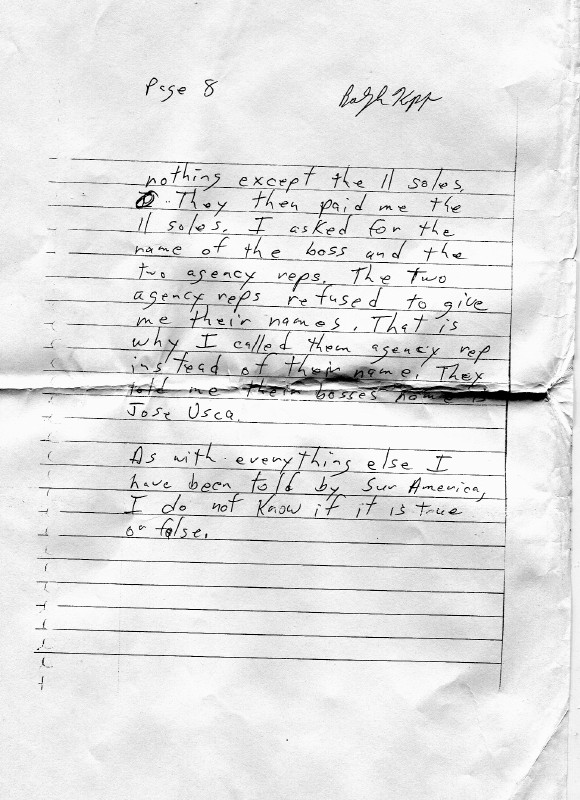 Page 8
Ralph Kopp
nothing except the 11 soles.
They then paid me the
11 soles. I asked for the
name of the boss and the
two agency reps. The two
agency reps refused to give
me their names. That is
why I called them agency rep
instead of their name. They
told me their bosses name is
Jose Usca.
As with everything else I
have been told by Sur America,
I do not know if it is true
or false.